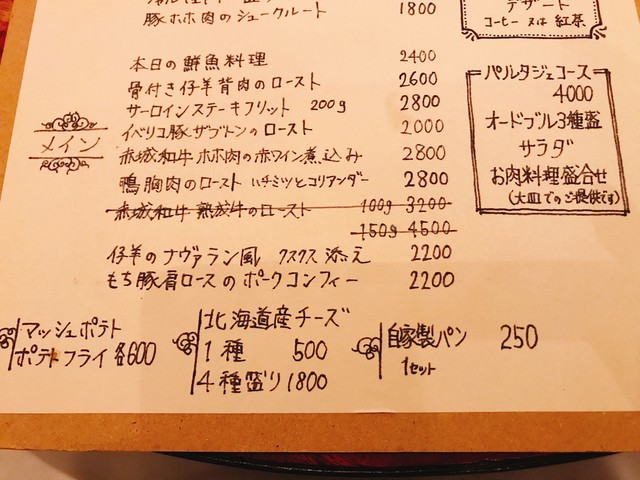 豚ホホ肉のシュークルート 1800
デザート
コーヒー 又は 紅茶
メイン
本日の鮮魚料理 2400
骨付き仔羊背肉のロースト 2600
サーロインステーキフリット 200g 2800
イベリコ豚ザブトンのロースト 2000
赤城和牛ホホ肉の赤ワイン煮込み 2800
鴨胸肉のロースト ハチミツとコリアンダー 2800
赤城和牛 熟成牛のロースト 100g 3200
150g 4500
仔羊のナヴァラン風 クスクス添え 2200
もち豚肩ロースのポークコンフィー 2200
パルタジェコース
4000
オードブル3種盛
サラダ
お肉料理盛合せ
(大皿でのご提供です)
マッシュポテト
ポテトフライ 各600
北海道産チーズ
1種 500
4種盛り 1800
自家製パン 250
1セット